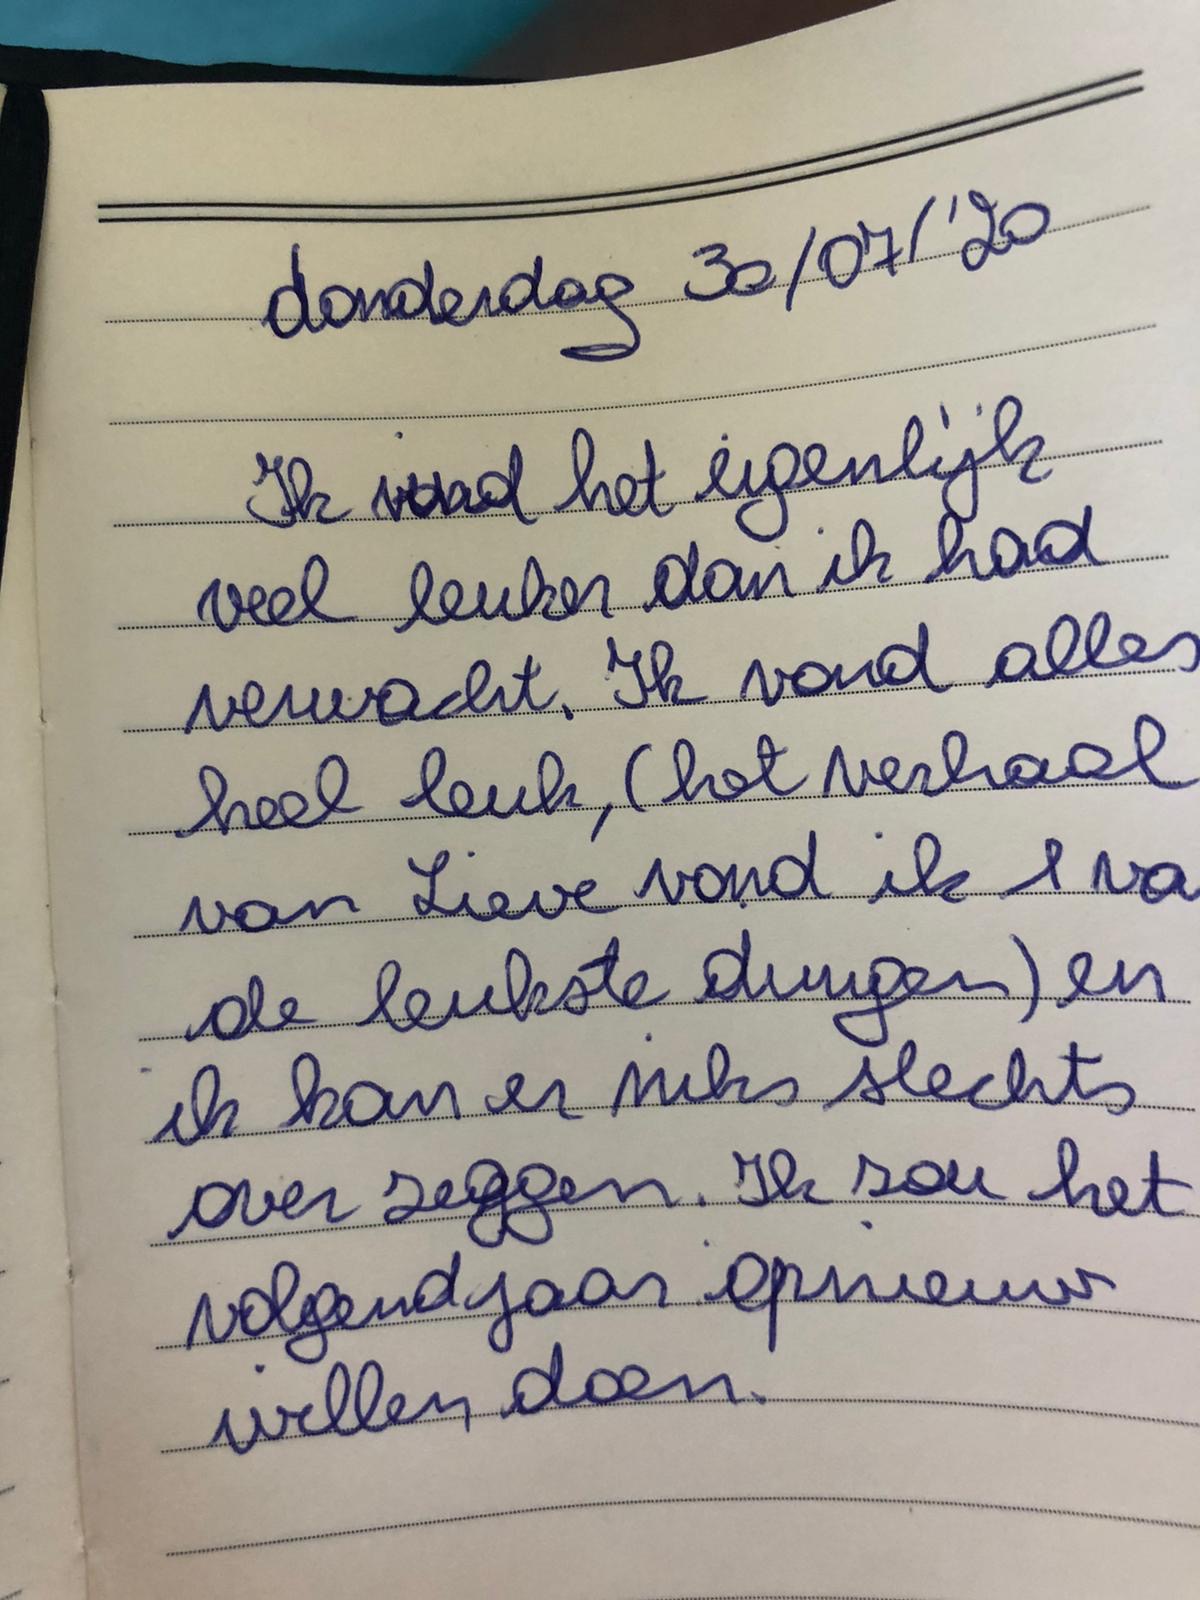 donderdag 30/07/'20
Ik vond het eigenlijk
veel leuker dan ik had
verwacht. Ik vond alles
heel leuk, (het verhaal
van Lieve vond ik 1 va
de leukste dingen) en
ik kan er niks slechts
over zeggen. Ik zou het
volgend jaar opnieuw
willen doen.